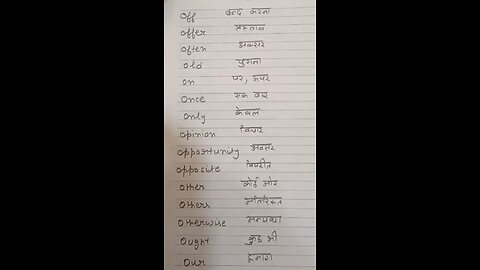 Off बन्द करना
offer प्रस्ताव
often अक्सर
old पुराना
on पर, ऊपर
Once एक बार
only केवल
opinion विचार
opportunity अवसर
opposite विपरीत
other कोई और
others अतिरिक्त
Otherwise अन्यथा
Ought कुछ भी
Our हमारा